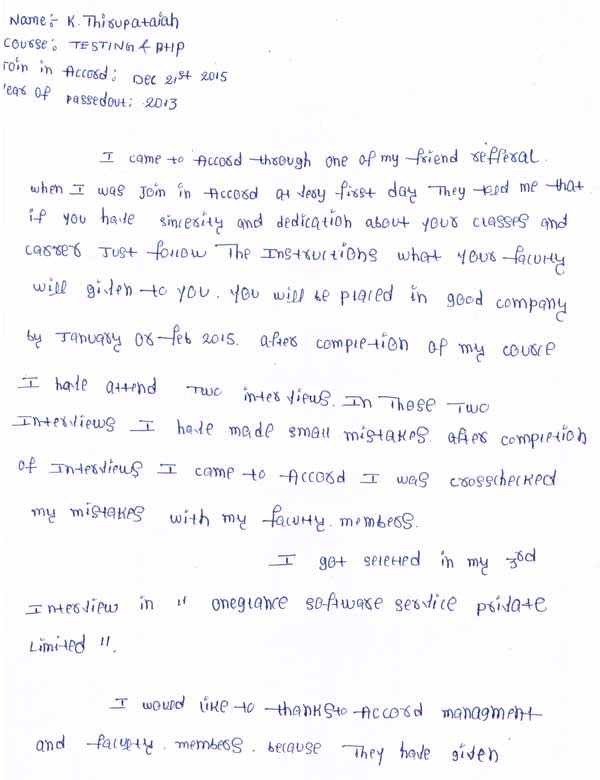 Name:- K. Thirupataiah
Course: TESTING & PHP
Join in Accord: Dec 21st 2015
Year of passedout: 2013
I came to Accord through one of my friend refferal.
when I was join in Accord at very first day They told me that
if you have sincerity and dedication about your classes and
carrer Just follow The Instructions what your faculty
will given to you. you will be placed in good company
by January or feb 2015. after completion of my course
I have attend Two interviews. In Those Two
Interviews I have made small mistakes. after completion
of Interviews I came to Accord I was crosschecked
my mistakes with my faculty. members.
I got seleted in my 3rd
Interview in " oneglance software service private
Limited ".
I would like to thanks to Accord managment
and faculty. members. because They have given